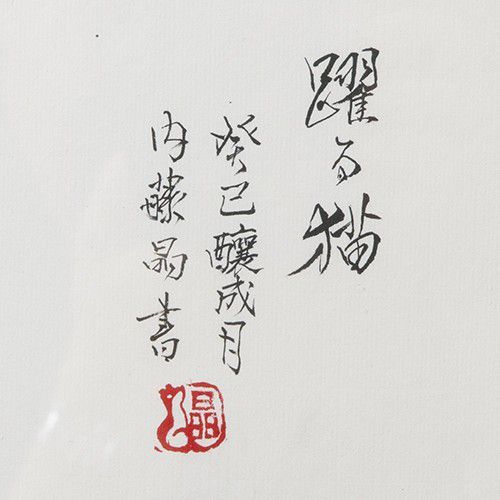 躍る猫
癸巳釀成月
内藤晶書
晶